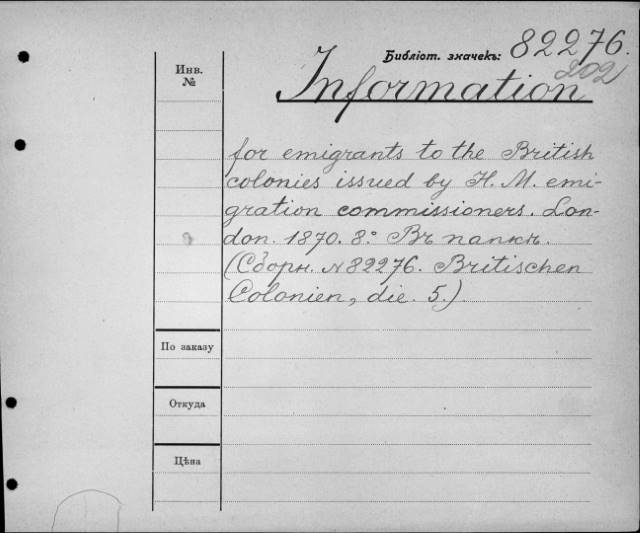 Библіот. значекъ: 82276.
202
Инв.
№
Information
for emigrants to the British
colonies issued by H. M. emi-
gration commissioners. Lon-
don. 1870. 8.° Въ папкѣ.
(Сборн. № 82276. Britischen
Colonien, die. 5.)
По заказу
Откуда
Цѣна